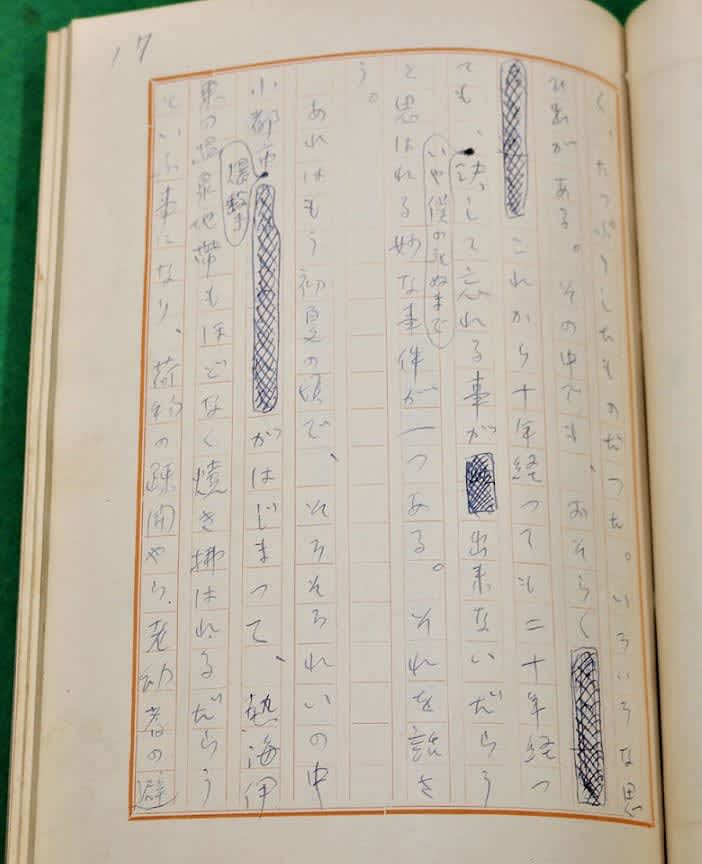 17
く、たつぷりしたものだつた。いろいろな思
ひ出がある。その中でも、おそらく
これから十年経つても二十年経つ
ても、いや僕の死ぬまで決して忘れる事が出来ないだらう
と思はれる妙な事件が一つある。それを話さ
う。
あれはもう初夏の頃で、そろそろれいの中
小都市爆撃がはじまつて、熱海伊
東の温泉地帯もほどなく燒き拂はれるだらう
といふ事になり、荷物の疎開やら、老幼者の避